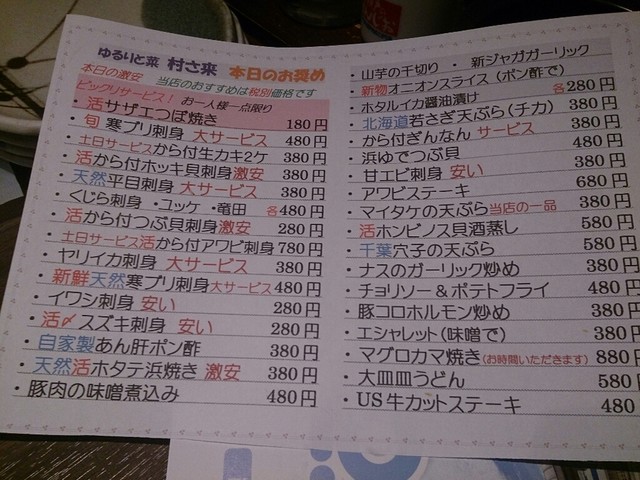 ゆるりと菜 村さ来 本日のお奨め
本日の激安 当店のおすすめは税別価格です
ビックリサービス! お一人様一点限り
・活サザエつぼ焼き 180円
・旬 寒ブリ刺身 大サービス 480円
・土日サービスから付生カキ2ケ 380円
・活から付ホッキ貝刺身激安 380円
・天然平目刺身 大サービス 380円
・くじら刺身・ユッケ・竜田 各480円
・活から付つぶ貝刺身激安 280円
・土日サービス活から付アワビ刺身 780円
・ヤリイカ刺身 大サービス 380円
・新鮮天然寒ブリ刺身大サービス 480円
・イワシ刺身 安い 280円
・活〆スズキ刺身 安い 280円
・自家製あん肝ポン酢 380円
・天然活ホタテ浜焼き 激安 380円
・豚肉の味噌煮込み 480円
・山芋の千切り ・ 新ジャガガーリック
・新物オニオンスライス(ポン酢で) 各280円
・ホタルイカ醤油漬け 380円
・北海道若さぎ天ぷら(チカ) 380円
・から付ぎんなん サービス 480円
・浜ゆでつぶ貝 380円
・甘エビ刺身 安い 380円
・アワビステーキ 680円
・マイタケの天ぷら当店の一品 380円
・活ホンビノス貝酒蒸し 580円
・千葉穴子の天ぷら 580円
・ナスのガーリック炒め 380円
・チョリソー&ポテトフライ 480円
・豚コロホルモン炒め 380円
・エシャレット(味噌で) 380円
・マグロカマ焼き(お時間いただきます) 880円
・大皿皿うどん 580円
・US牛カットステーキ 480